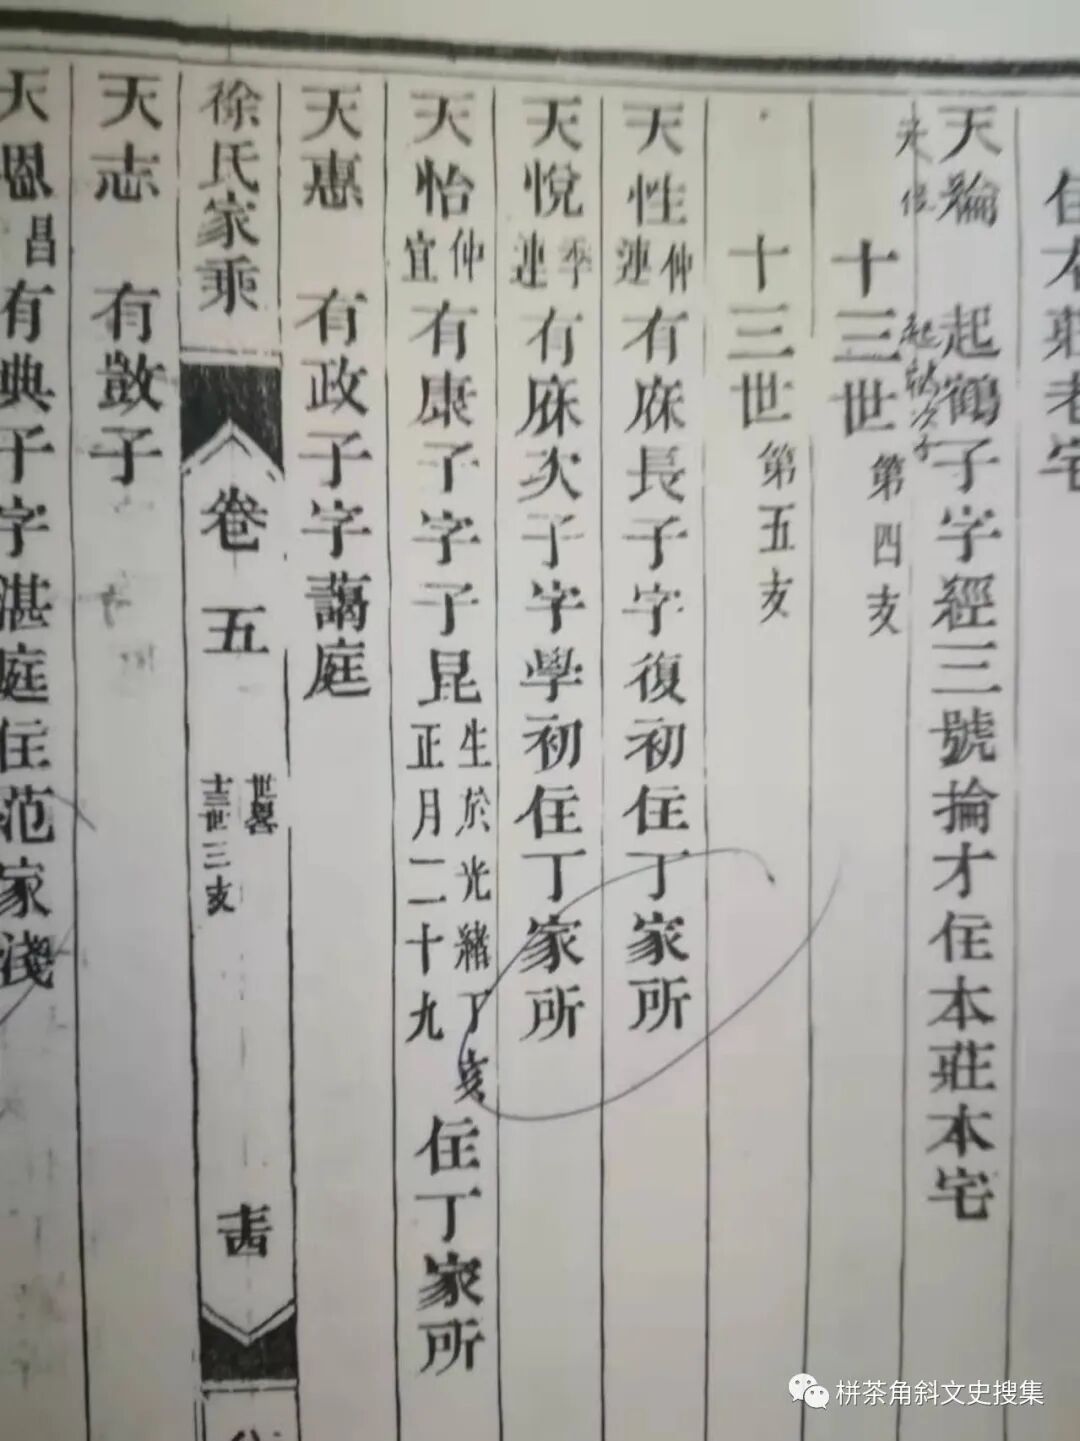 住本莊老宅
天綸 起鶴子字經三號掄才住本莊本宅
十三世 第四支
十三世 第五支
天性 仲蓮 有庥長子字復初住丁家所
天悅 季蓮 有庥次子字學初住丁家所
天怡 仲宜 有康子字子昆 生於光緒丁亥正月二十九 住丁家所
天惠 有政子字藹庭
徐氏家乘 卷五 世畧 十三世三支
天志 有敳子
天恩 昌 有典子字湛庭住范家淺
栟茶角斜文史搜集